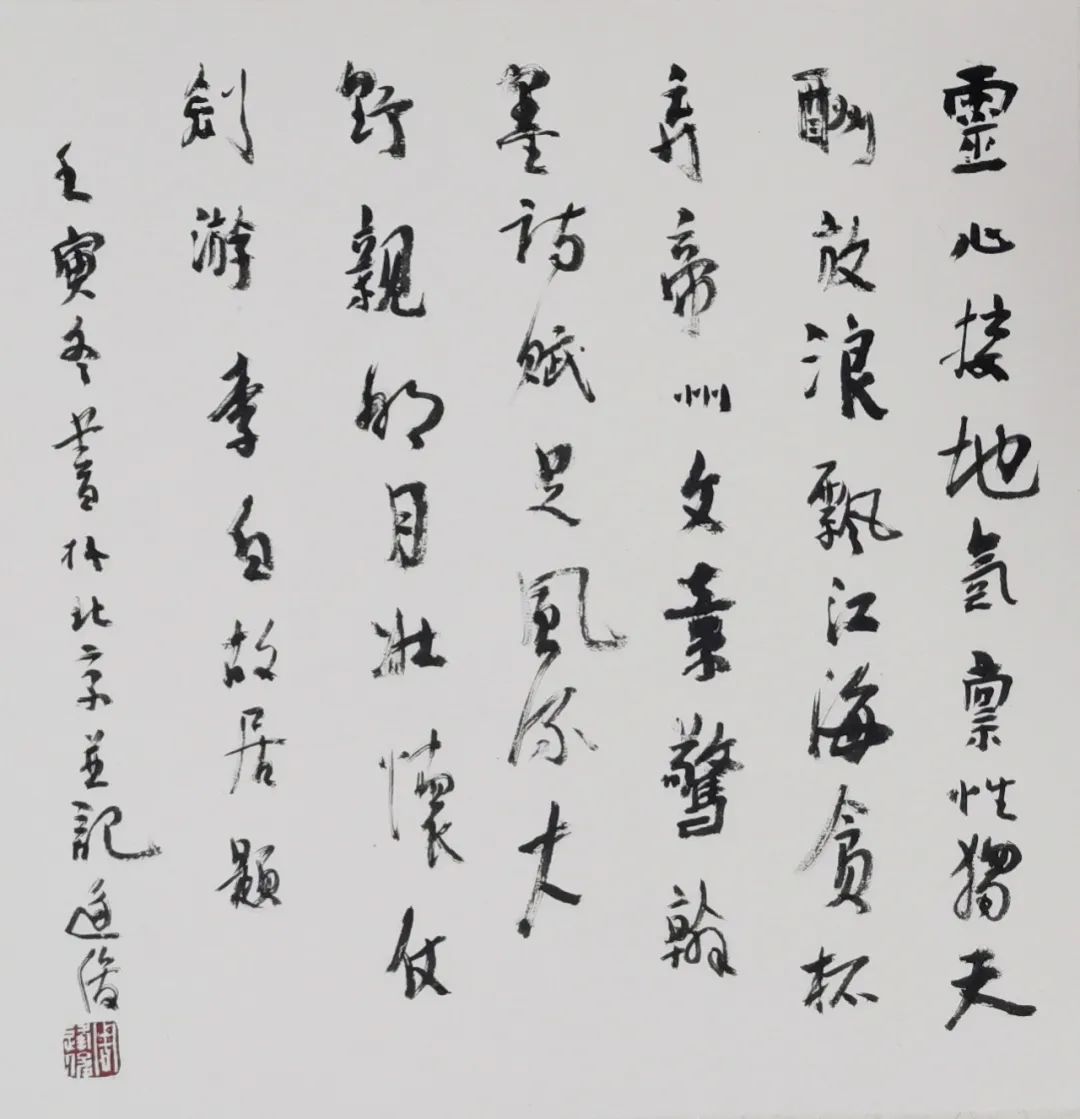 靈心接地氣稟性獨天
酬放浪飄江海貪杯
弃帝州文章驚翰
墨詩賦足風流大
野親明月壯懷仗
劍游李白故居題
壬寅冬書於北京並記逢俊